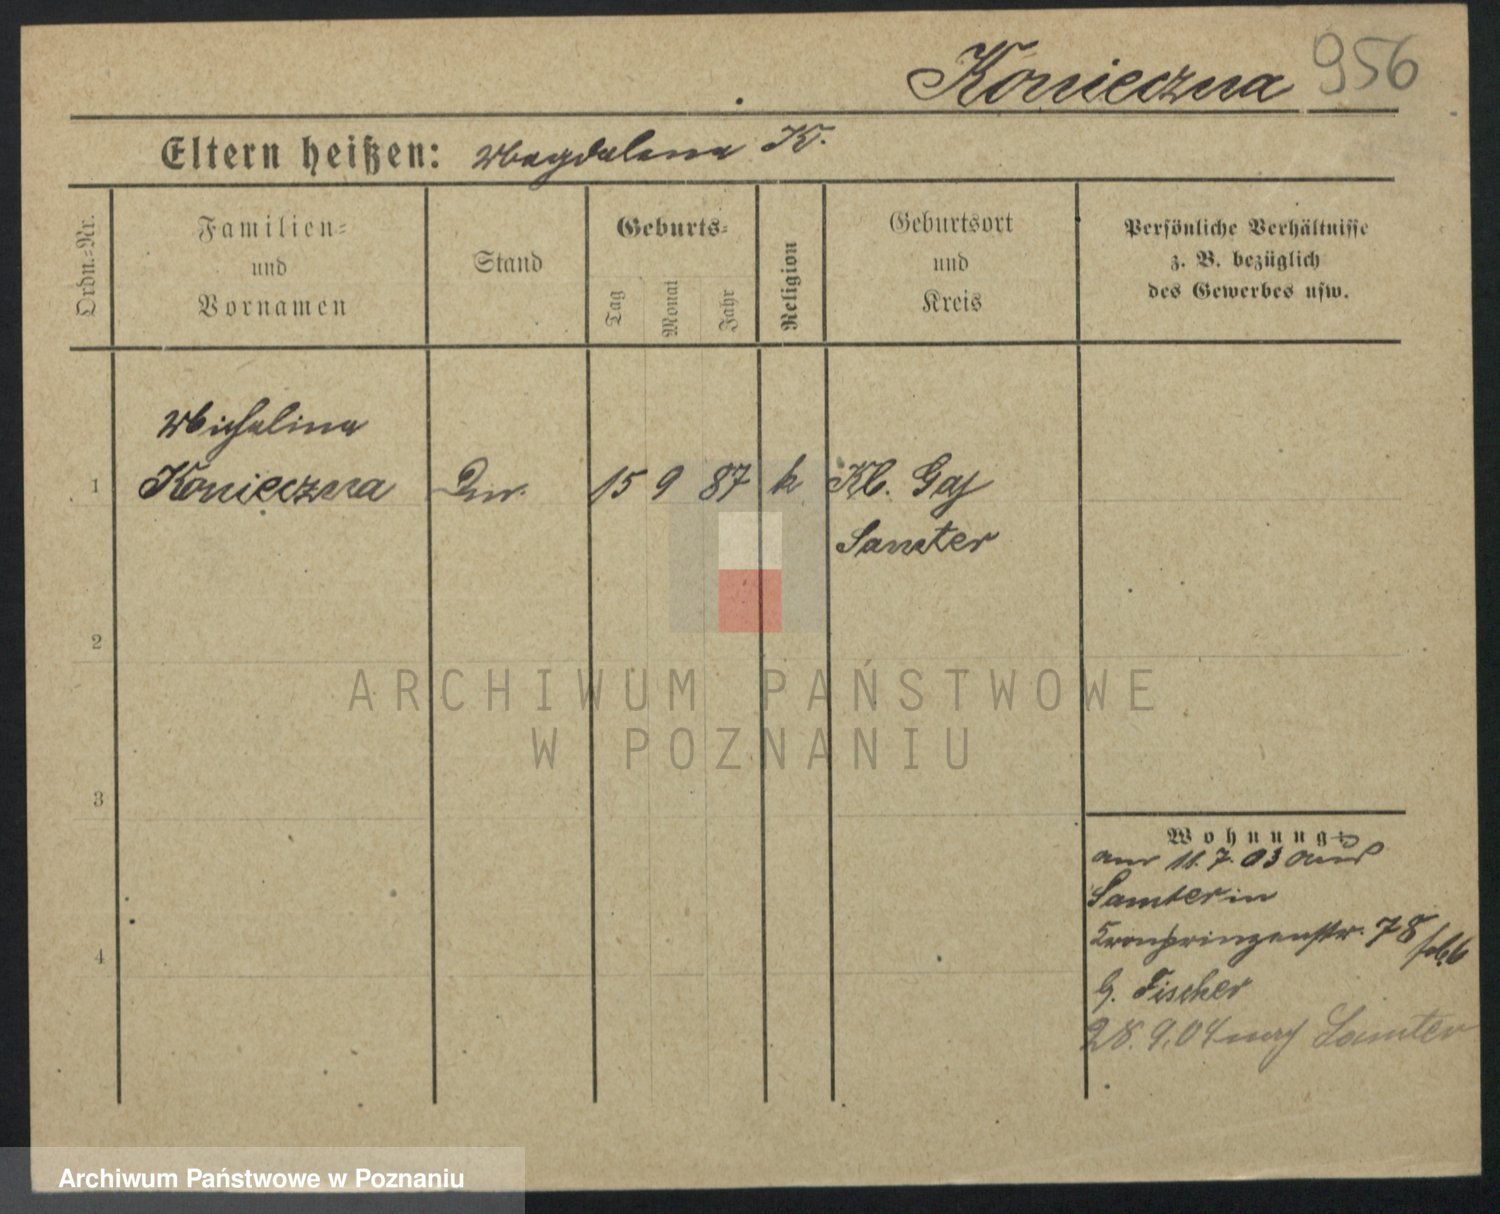 Konieczna 956
Eltern heißen: Magdalena K.
Ordn.-Nr.
Familien-
und
Vornamen
Stand
Geburts-
Tag
Monat
Jahr
Religion
Geburtsort
und
Kreis
Persönliche Verhältnisse
z. B. bezüglich
des Gewerbes usw.
Michalina
1 Konieczna 15 9 87 k Kl. Gaj
Samter
2
3
4
Wohnung
am 11.7.03 aus
Samter in
Kronprinzenstr. 78
G. Fischer
28.9.04 nach Samter
ARCHIWUM PAŃSTWOWE
W POZNANIU
Archiwum Państwowe w Poznaniu